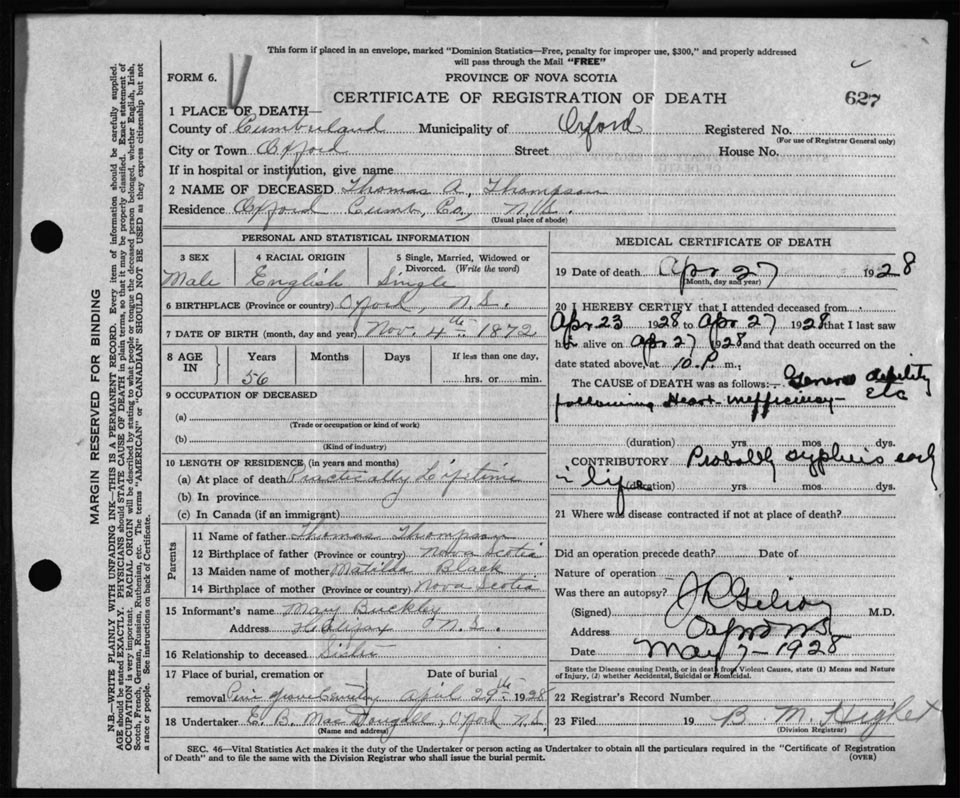 This form if placed in an envelope, marked "Dominion Statistics—Free, penalty for improper use, $300," and properly addressed
will pass through the Mail "FREE"
FORM 6.
PROVINCE OF NOVA SCOTIA
CERTIFICATE OF REGISTRATION OF DEATH
627
1 PLACE OF DEATH—
County of Cumberland Municipality of Oxford Registered No.
(For use of Registrar General only)
City or Town Oxford Street House No.
If in hospital or institution, give name
2 NAME OF DECEASED Thomas A, Thompson
Residence Oxford Cumb, Co., N.S.
(Usual place of abode)
PERSONAL AND STATISTICAL INFORMATION
3 SEX 4 RACIAL ORIGIN 5 Single, Married, Widowed or
Divorced. (Write the word)
Male English Single
6 BIRTHPLACE (Province or country) Oxford, N.S.
7 DATE OF BIRTH (month, day and year) Nov. 4th 1872
8 AGE IN Years Months Days If less than one day,
56 hrs. or min.
9 OCCUPATION OF DECEASED
(a)
(Trade or occupation or kind of work)
(b)
(Kind of industry)
10 LENGTH OF RESIDENCE (in years and months)
(a) At place of death Practically Lifetime
(b) In province
(c) In Canada (if an immigrant)
Parents
11 Name of father Thomas Thompson
12 Birthplace of father (Province or country) Nova Scotia
13 Maiden name of mother Matilda Black
14 Birthplace of mother (Province or country) Nova Scotia
15 Informant's name Mary Buckley
Address Halifax N.S.
16 Relationship to deceased Sister
17 Place of burial, cremation or Date of burial
removal Pine Grove Cemetery April 29th 1928
18 Undertaker E. B. MacDougall, Oxford N.S.
(Name and address)
MEDICAL CERTIFICATE OF DEATH
19 Date of death Apr 27 1928
(Month, day and year)
20 I HEREBY CERTIFY that I attended deceased from
Apr 23 1928 to Apr 27 1928 that I last saw
him alive on Apr 27 1928 and that death occurred on the
date stated above, at 10.P. m.,
The CAUSE OF DEATH was as follows:— General debility
following Heart inefficiency Etc
(duration) yrs mos dys.
CONTRIBUTORY Probably syphilis early
in life
(duration) yrs mos dys.
21 Where was disease contracted if not at place of death?
Did an operation precede death? Date of
Nature of operation
Was there an autopsy?
(Signed) M.D.
Address Oxford NS
Date May 7-1928
State the Disease causing Death, or in death from Violent Causes, state (1) Means and Nature
of Injury, (2) whether Accidental, Suicidal or Homicidal.
22 Registrar's Record Number
23 Filed 19 B. M.
(Division Registrar)
SEC. 46—Vital Statistics Act makes it the duty of the Undertaker or person acting as Undertaker to obtain all the particulars required in the "Certificate of Registration
of Death" and to file the same with the Division Registrar who shall issue the burial permit.
(OVER)
MARGIN RESERVED FOR BINDING
N.B.—WRITE PLAINLY WITH UNFADING INK—THIS IS A PERMANENT RECORD. Every item of information should be carefully supplied.
AGE should be stated EXACTLY. PHYSICIANS should STATE CAUSE OF DEATH in plain terms, so that it may be properly classified. Exact statement of
OCCUPATION is very important. RACIAL ORIGIN will be described by stating to what people or tongue the deceased person belonged, whether English, Irish,
Scotch, French, German, Russian, Ruthenian, etc. The terms "AMERICAN" or "CANADIAN" SHOULD NOT BE USED as they express citizenship but not
a race or people. See instructions on back of Certificate.